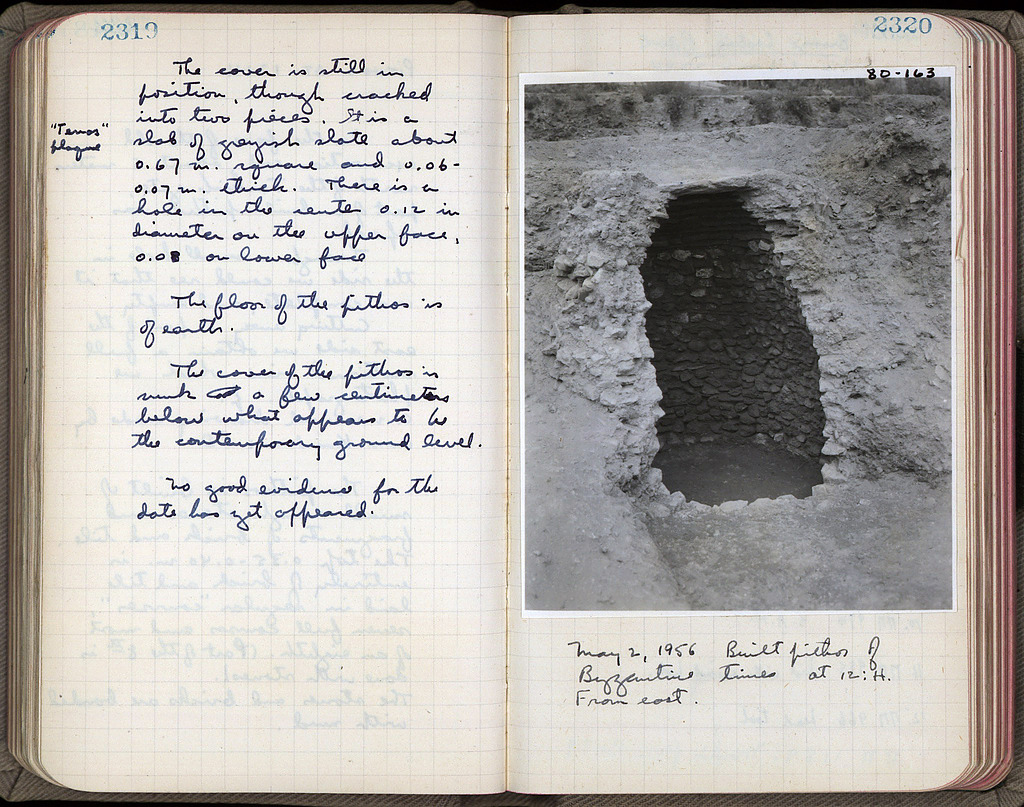 2319
The cover is still in
position, though cracked
into two pieces. It is a
"Tenos"
plaque
slab of greyish slate about
0.67 m. square and 0.06-
0.07 m. thick. There is a
hole in the center 0.12 in
diameter on the upper face,
0.08 on lower face
The floor of the pithos is
of earth.
The cover of the pithos is
sunk a few centimeters
below what appears to be
the contemporary ground level.
No good evidence for the
date has yet appeared.
2320
80-163
May 2, 1956 Built pithos of
Byzantine times at 12:H.
From east.